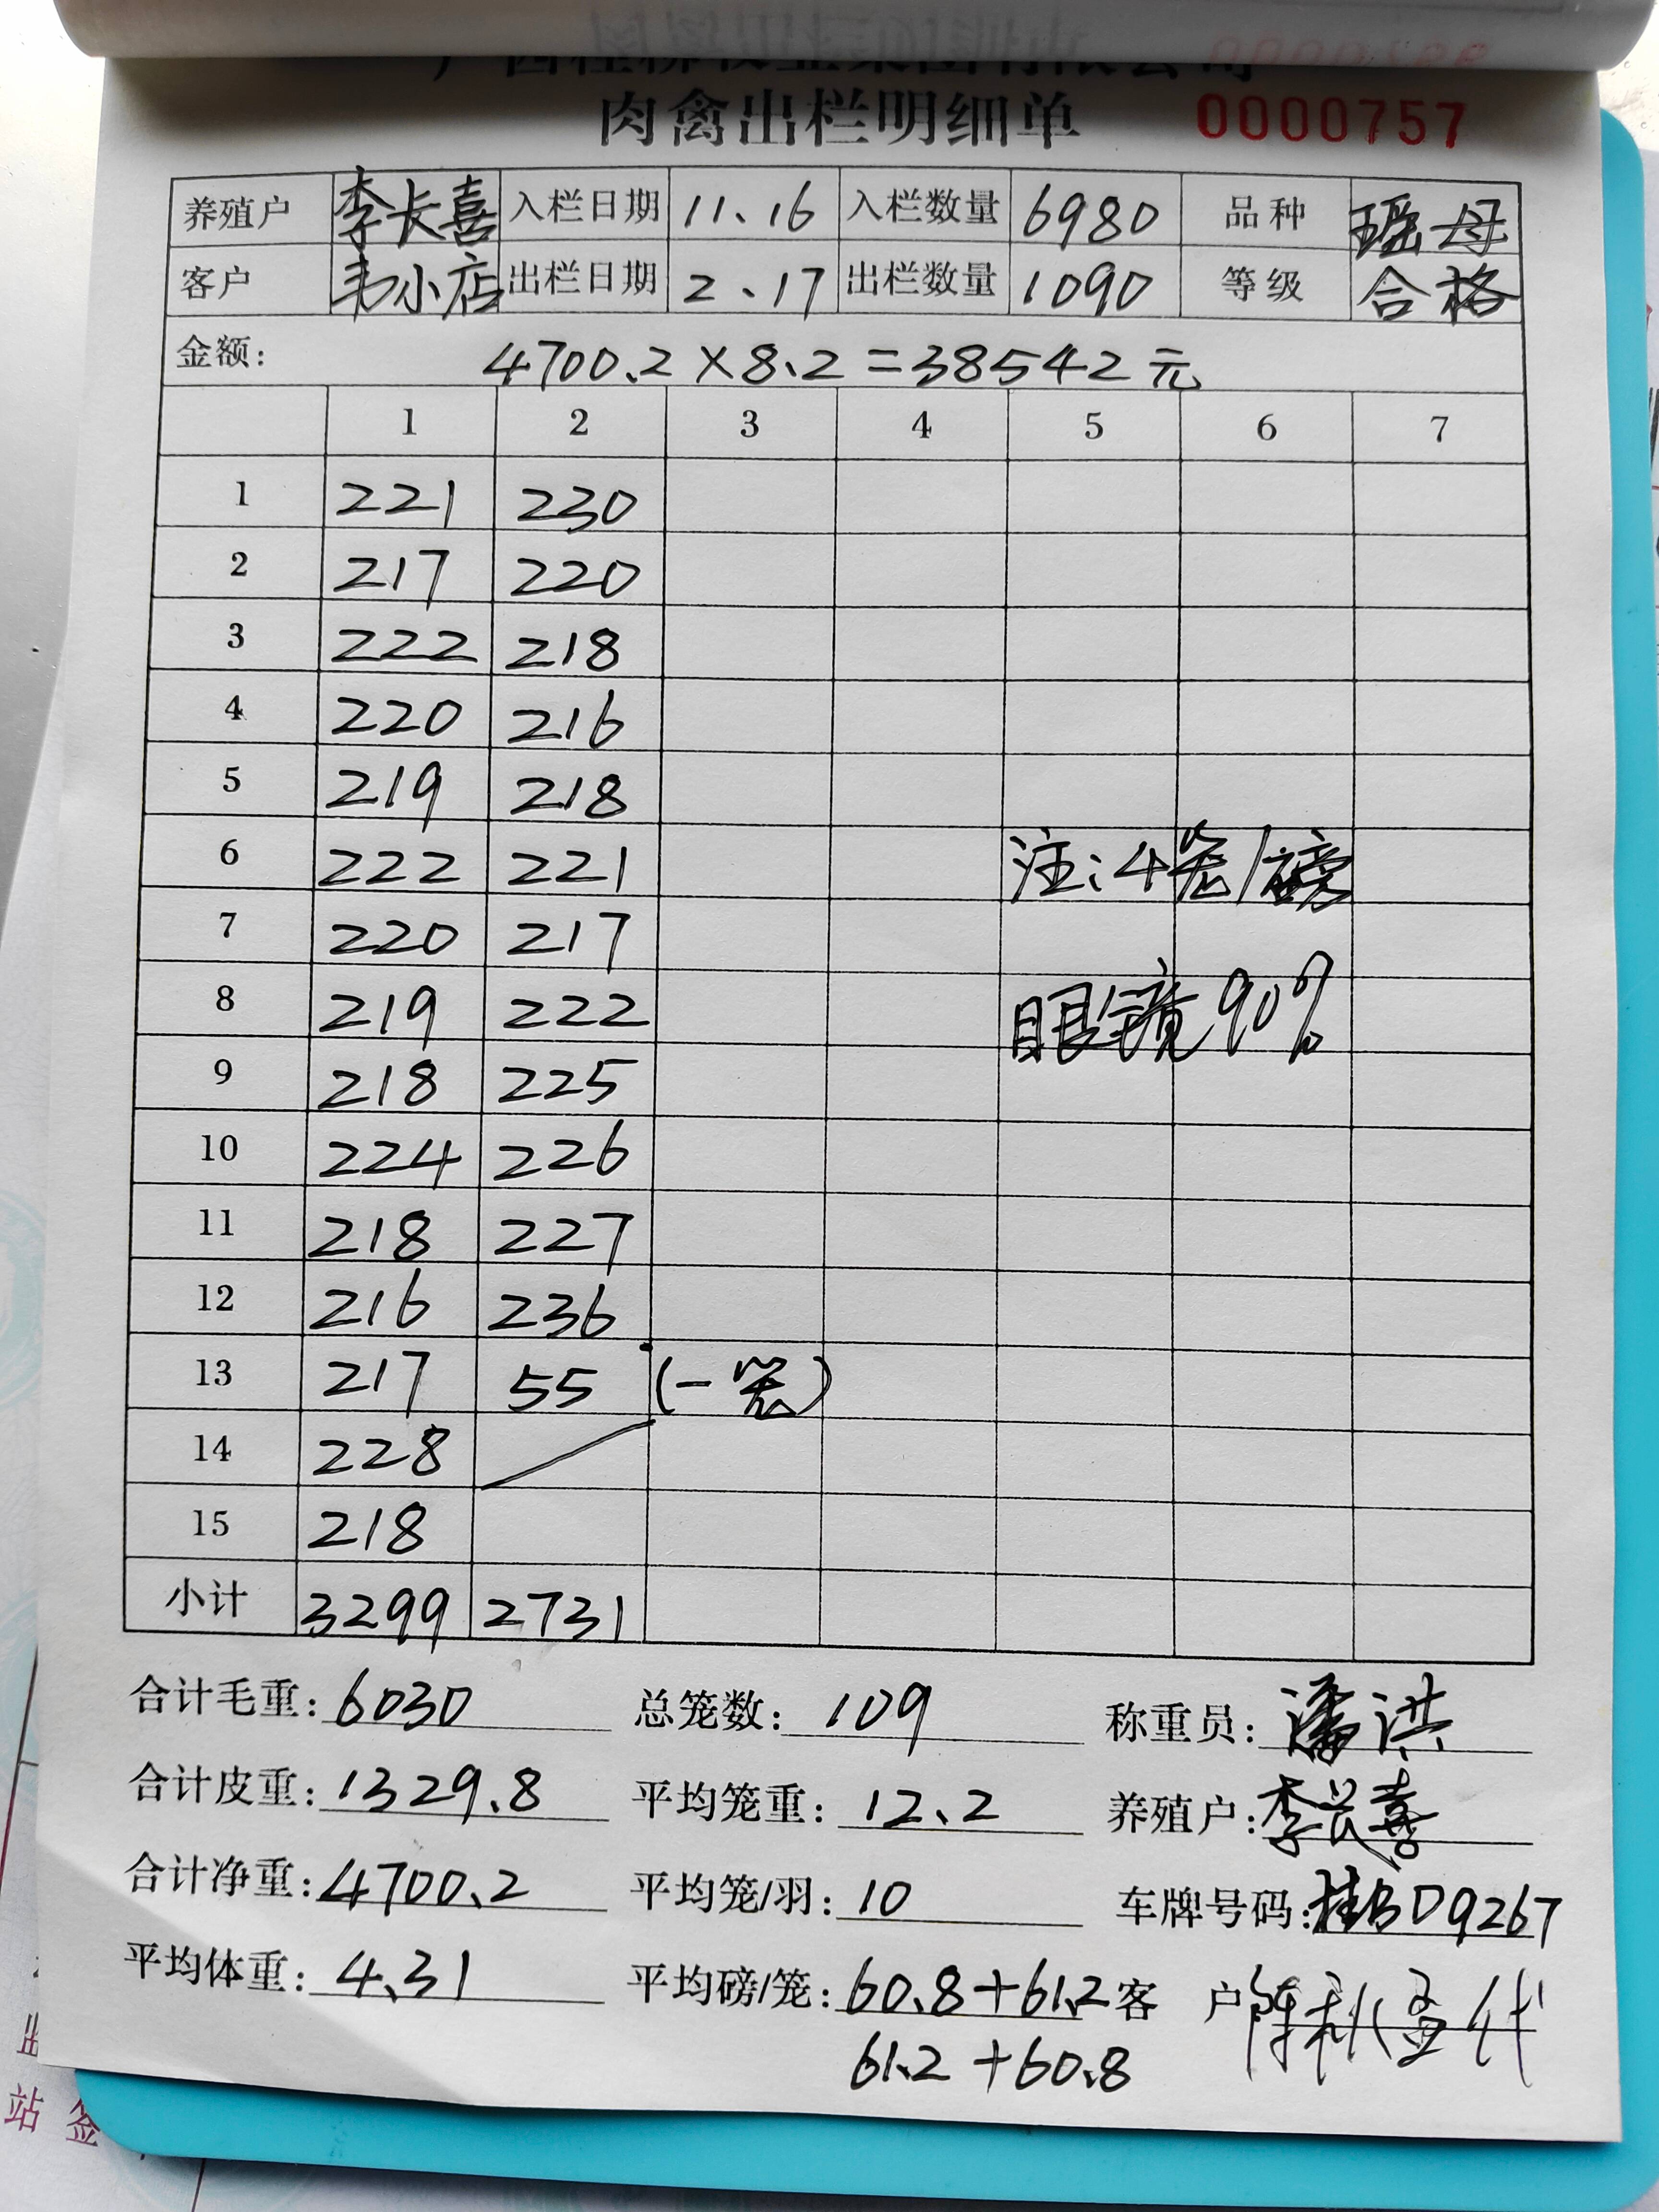 肉禽出栏明细单 0000757
养殖户 李长喜 入栏日期 11.16 入栏数量 6980 品种 瑶母
客户 韦小店 出栏日期 2.17 出栏数量 1090 等级 合格
金额: 4700.2×8.2=38542元
1 2 3 4 5 6 7
1 221 230
2 217 220
3 222 218
4 220 216
5 219 218
6 222 221 注:4笼/磅
7 220 217
8 219 222 眼镜90%
9 218 225
10 224 226
11 218 227
12 216 236
13 217 55 (一笼)
14 228
15 218
小计 3299 2731
合计毛重: 6030 总笼数: 109 称重员: 潘洪
合计皮重: 1329.8 平均笼重: 12.2 养殖户: 李长喜
合计净重: 4700.2 平均笼/羽: 10 车牌号码: 桂BD9267
平均体重: 4.31 平均磅/笼: 60.8+61.2 客 户
61.2+60.8